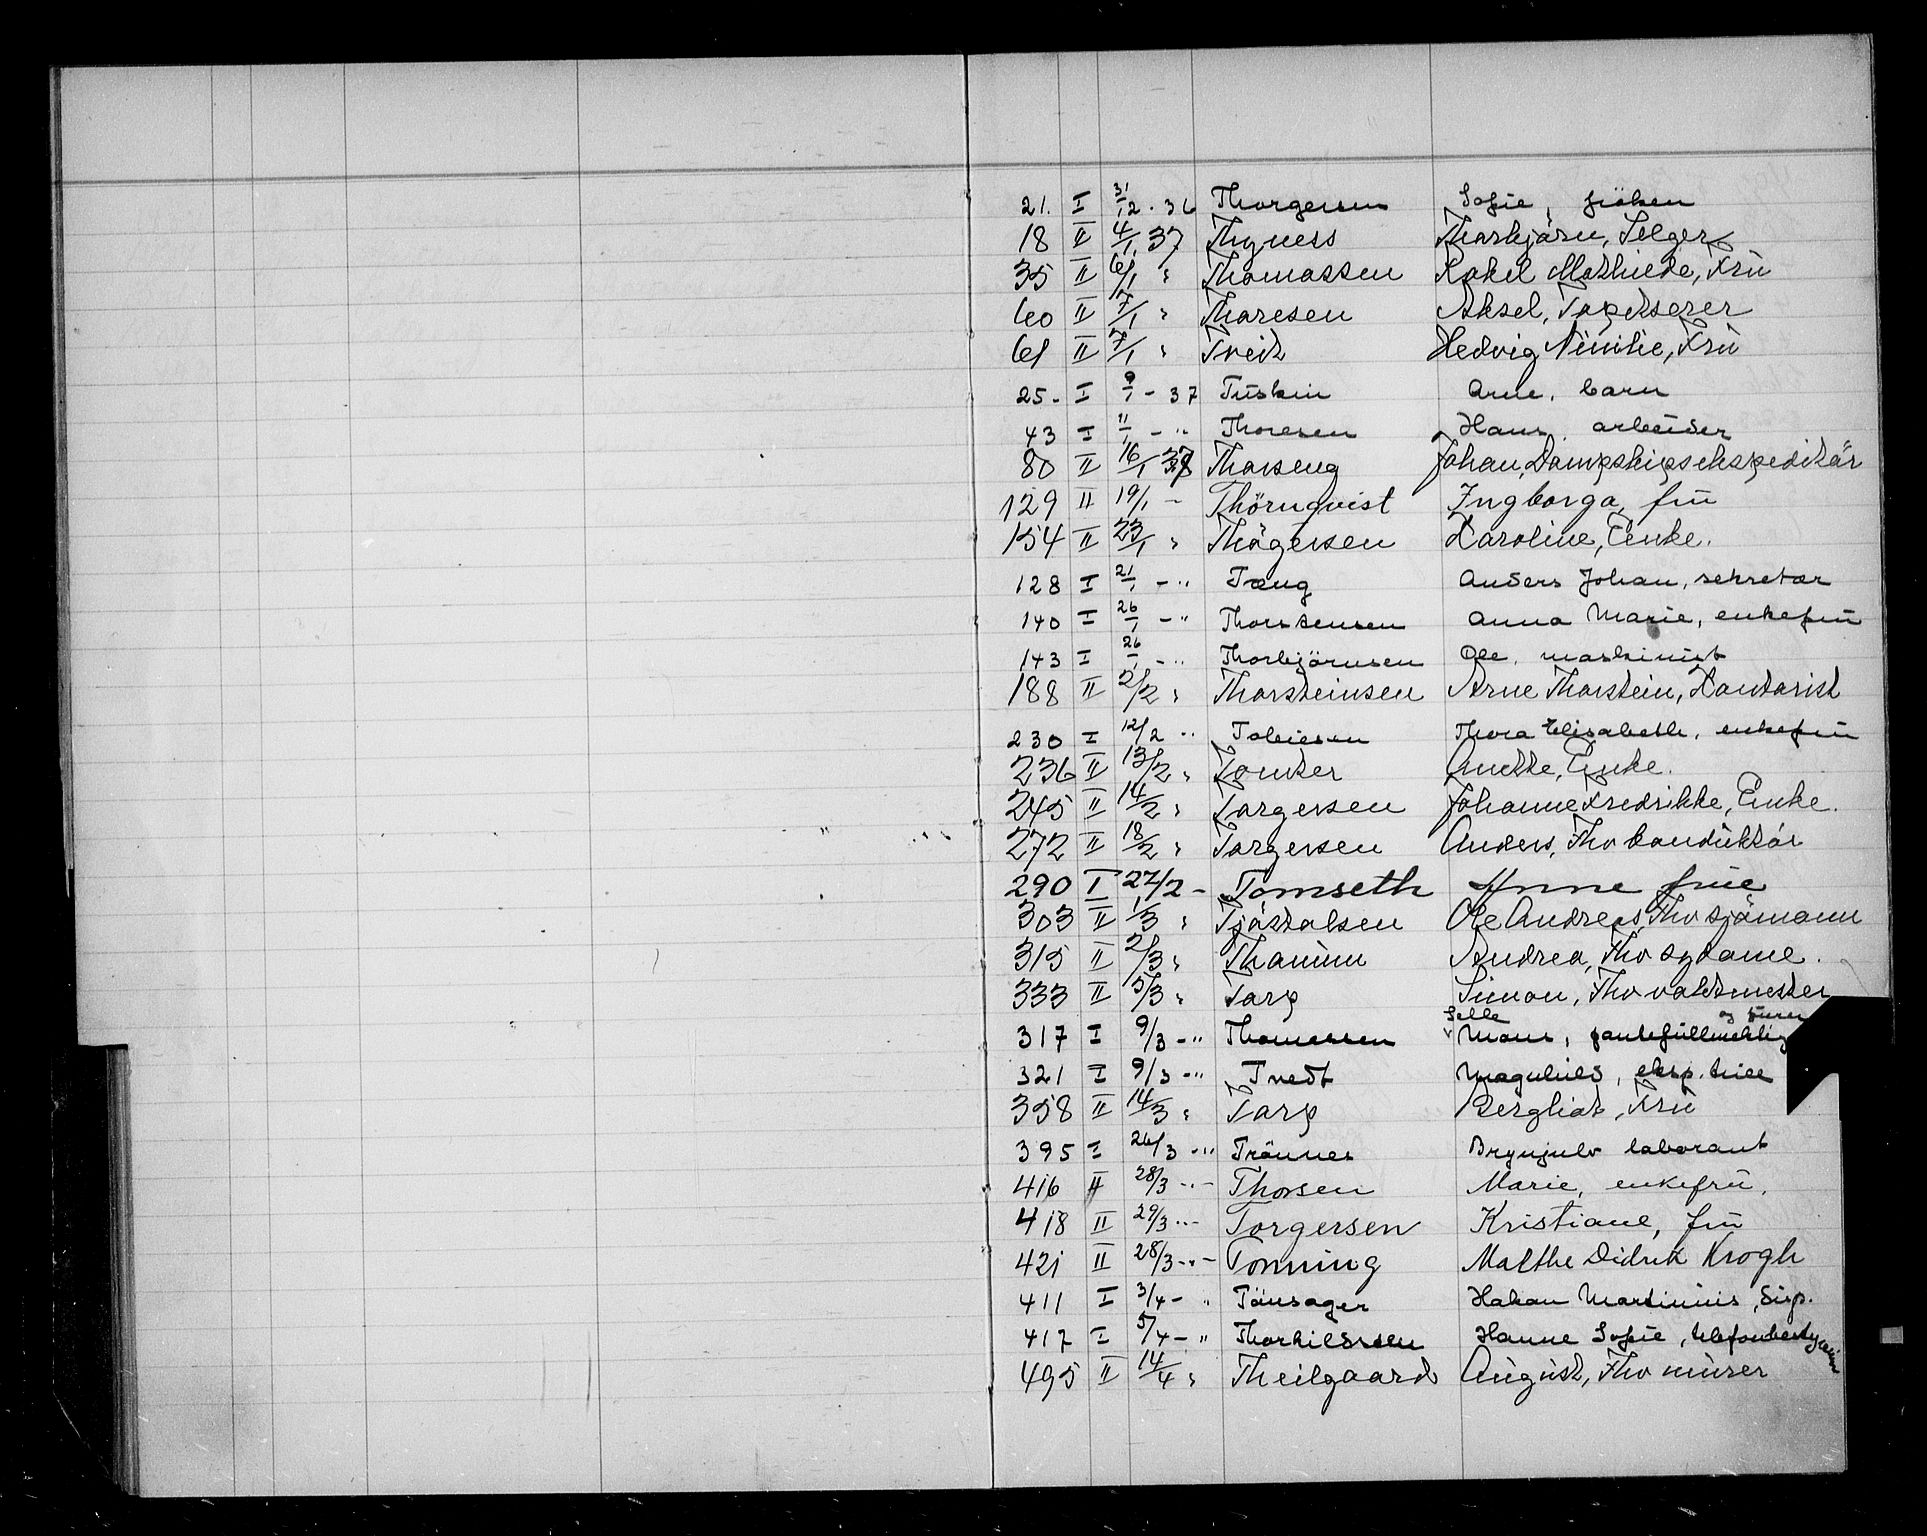 21. I 31/12 - 36 Thorgersen Sofie, fröken
18 II 4/1 37 Thyness Thorbjörn, Selger
35 II 6/1 " Thomassen Rakel Mathilde, Fru
60 II 7/1 " Thoresen Aksel, Tapetserer
61 II 7/1 " Tveit Hedvig Emilie, Fru
25 - I 9/1 - 37 Tuskin Arne, barn
43 I 11/1 - " Thoresen Hans, arbeider
80 II 16/1 37 Thorseng Johan, Dampskipsekspeditör
129 II 19/1 - Thörnqvist Ingborga, fru
154 II 23/1 " Thögersen Karoline, Enke.
128 I 21/1 - " Tæng Anders Johan, sekretær
140 I 26/1 - " Thorstensen Anna Marie, enkefru
143 I 26/1 - " Thorbjörnsen Ole, maskinist
188 II 2/2 " Thorsteinsen Arne Thorstein, Kontorist
230 I 12/2 " Tobiesen Thora Elisabeth, enkefru
236 II 13/2 " Tomter Anette, Enke.
245 II 14/2 " Torgersen Johanne Fredrikke, Enke.
272 II 18/2 " Torgersen Anders, Fhv konduktör
290 I 27/2 - Tomseth Anne frue
303 II 1/3 " Tjöstolsen Ole Andreas, Fhv sjömann
315 II 2/3 " Thamm Andrea, Fhv sydame.
333 II 5/3 " Torp Simon, Fhv vaktmester
317 I 9/3 - " Thomassen Selle Mons, fantefullmektig og fører
321 I 9/3 - " Tvedt Magnhild, eksp.trice
358 II 14/3 " Torp Bergliot, Fru
395 I 26/3 - " Trönnes Brynjulv laborant
416 II 28/3 - " - Thorsen Marie, enkefru.
418 II 29/3 - " - Torgersen Kristiane, fru
421 II 28/3 - " - Tonning Malthe Didrik Krogh
411 I 3/4 - " Tönsager Hakon Martinius, Disp.
417 I 5/4 - " Thorkildsen Hanne Sofie, telefonbestyrerinne
495 II 14/4 " Theilgaard August, Fhv murer